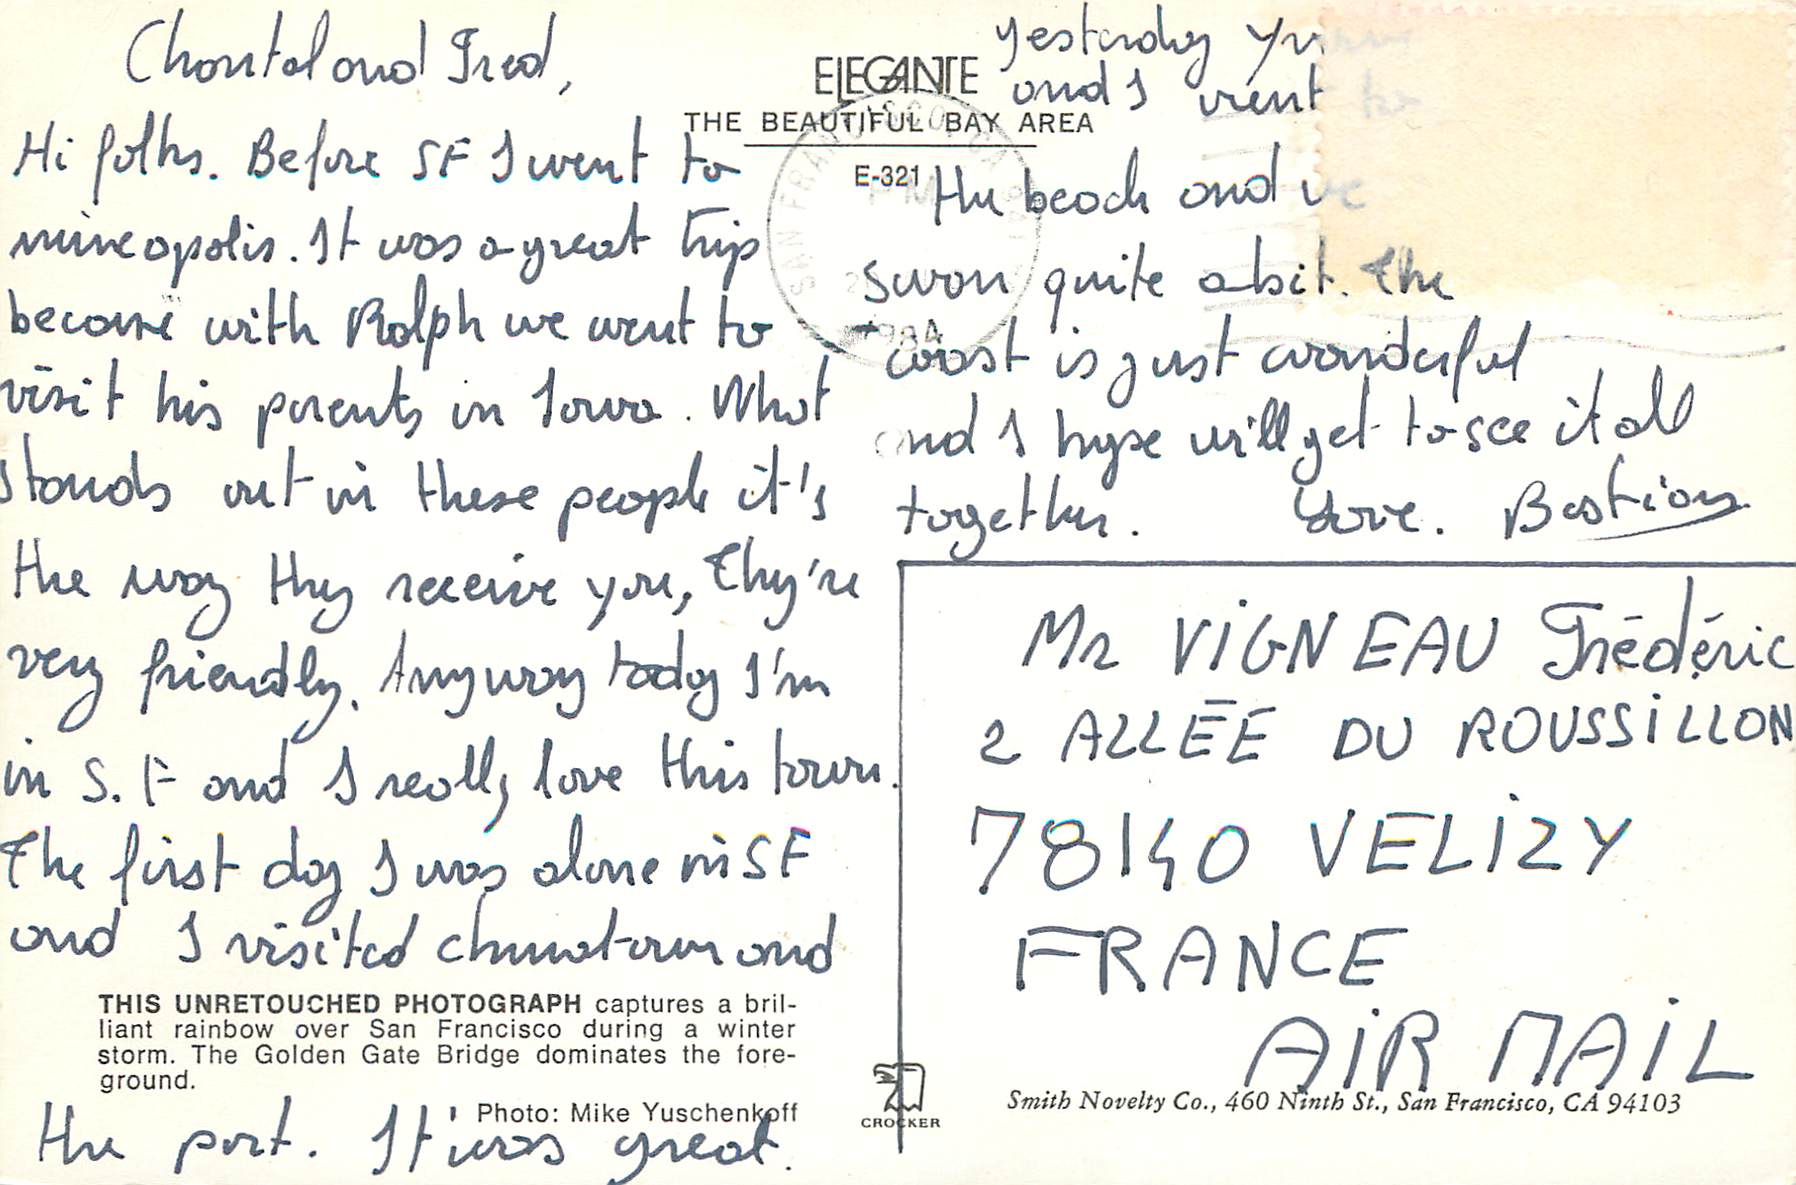 Chantal and Fred,
Hi folks. Before SF I went to
mineapolis. It was a great trip
because with Ralph we went to
visit his parents in Iowa. What
stands out in these people it's
the way they receive you, They're
very friendly. Anyway today I'm
in S.F and I really love this town.
The first day I was alone in SF
and I visited chinatown and
THIS UNRETOUCHED PHOTOGRAPH captures a bril-
liant rainbow over San Francisco during a winter
storm. The Golden Gate Bridge dominates the fore-
ground.
Photo: Mike Yuschenkoff
the port. It was great.
ELEGANTE
THE BEAUTIFUL BAY AREA
E-321
SAN FRANCISCO, CA
PM
1984
yesterday
and I went to
the beach and we
swam quite a bit. The
coast is just wonderful
and I hope will get to see it all
together. Love. Bastian
Mr VIGNEAU Frédéric
2 ALLÉE DU ROUSSILLON
78140 VELIZY
FRANCE
AIR MAIL
CROCKER
Smith Novelty Co., 460 Ninth St., San Francisco, CA 94103